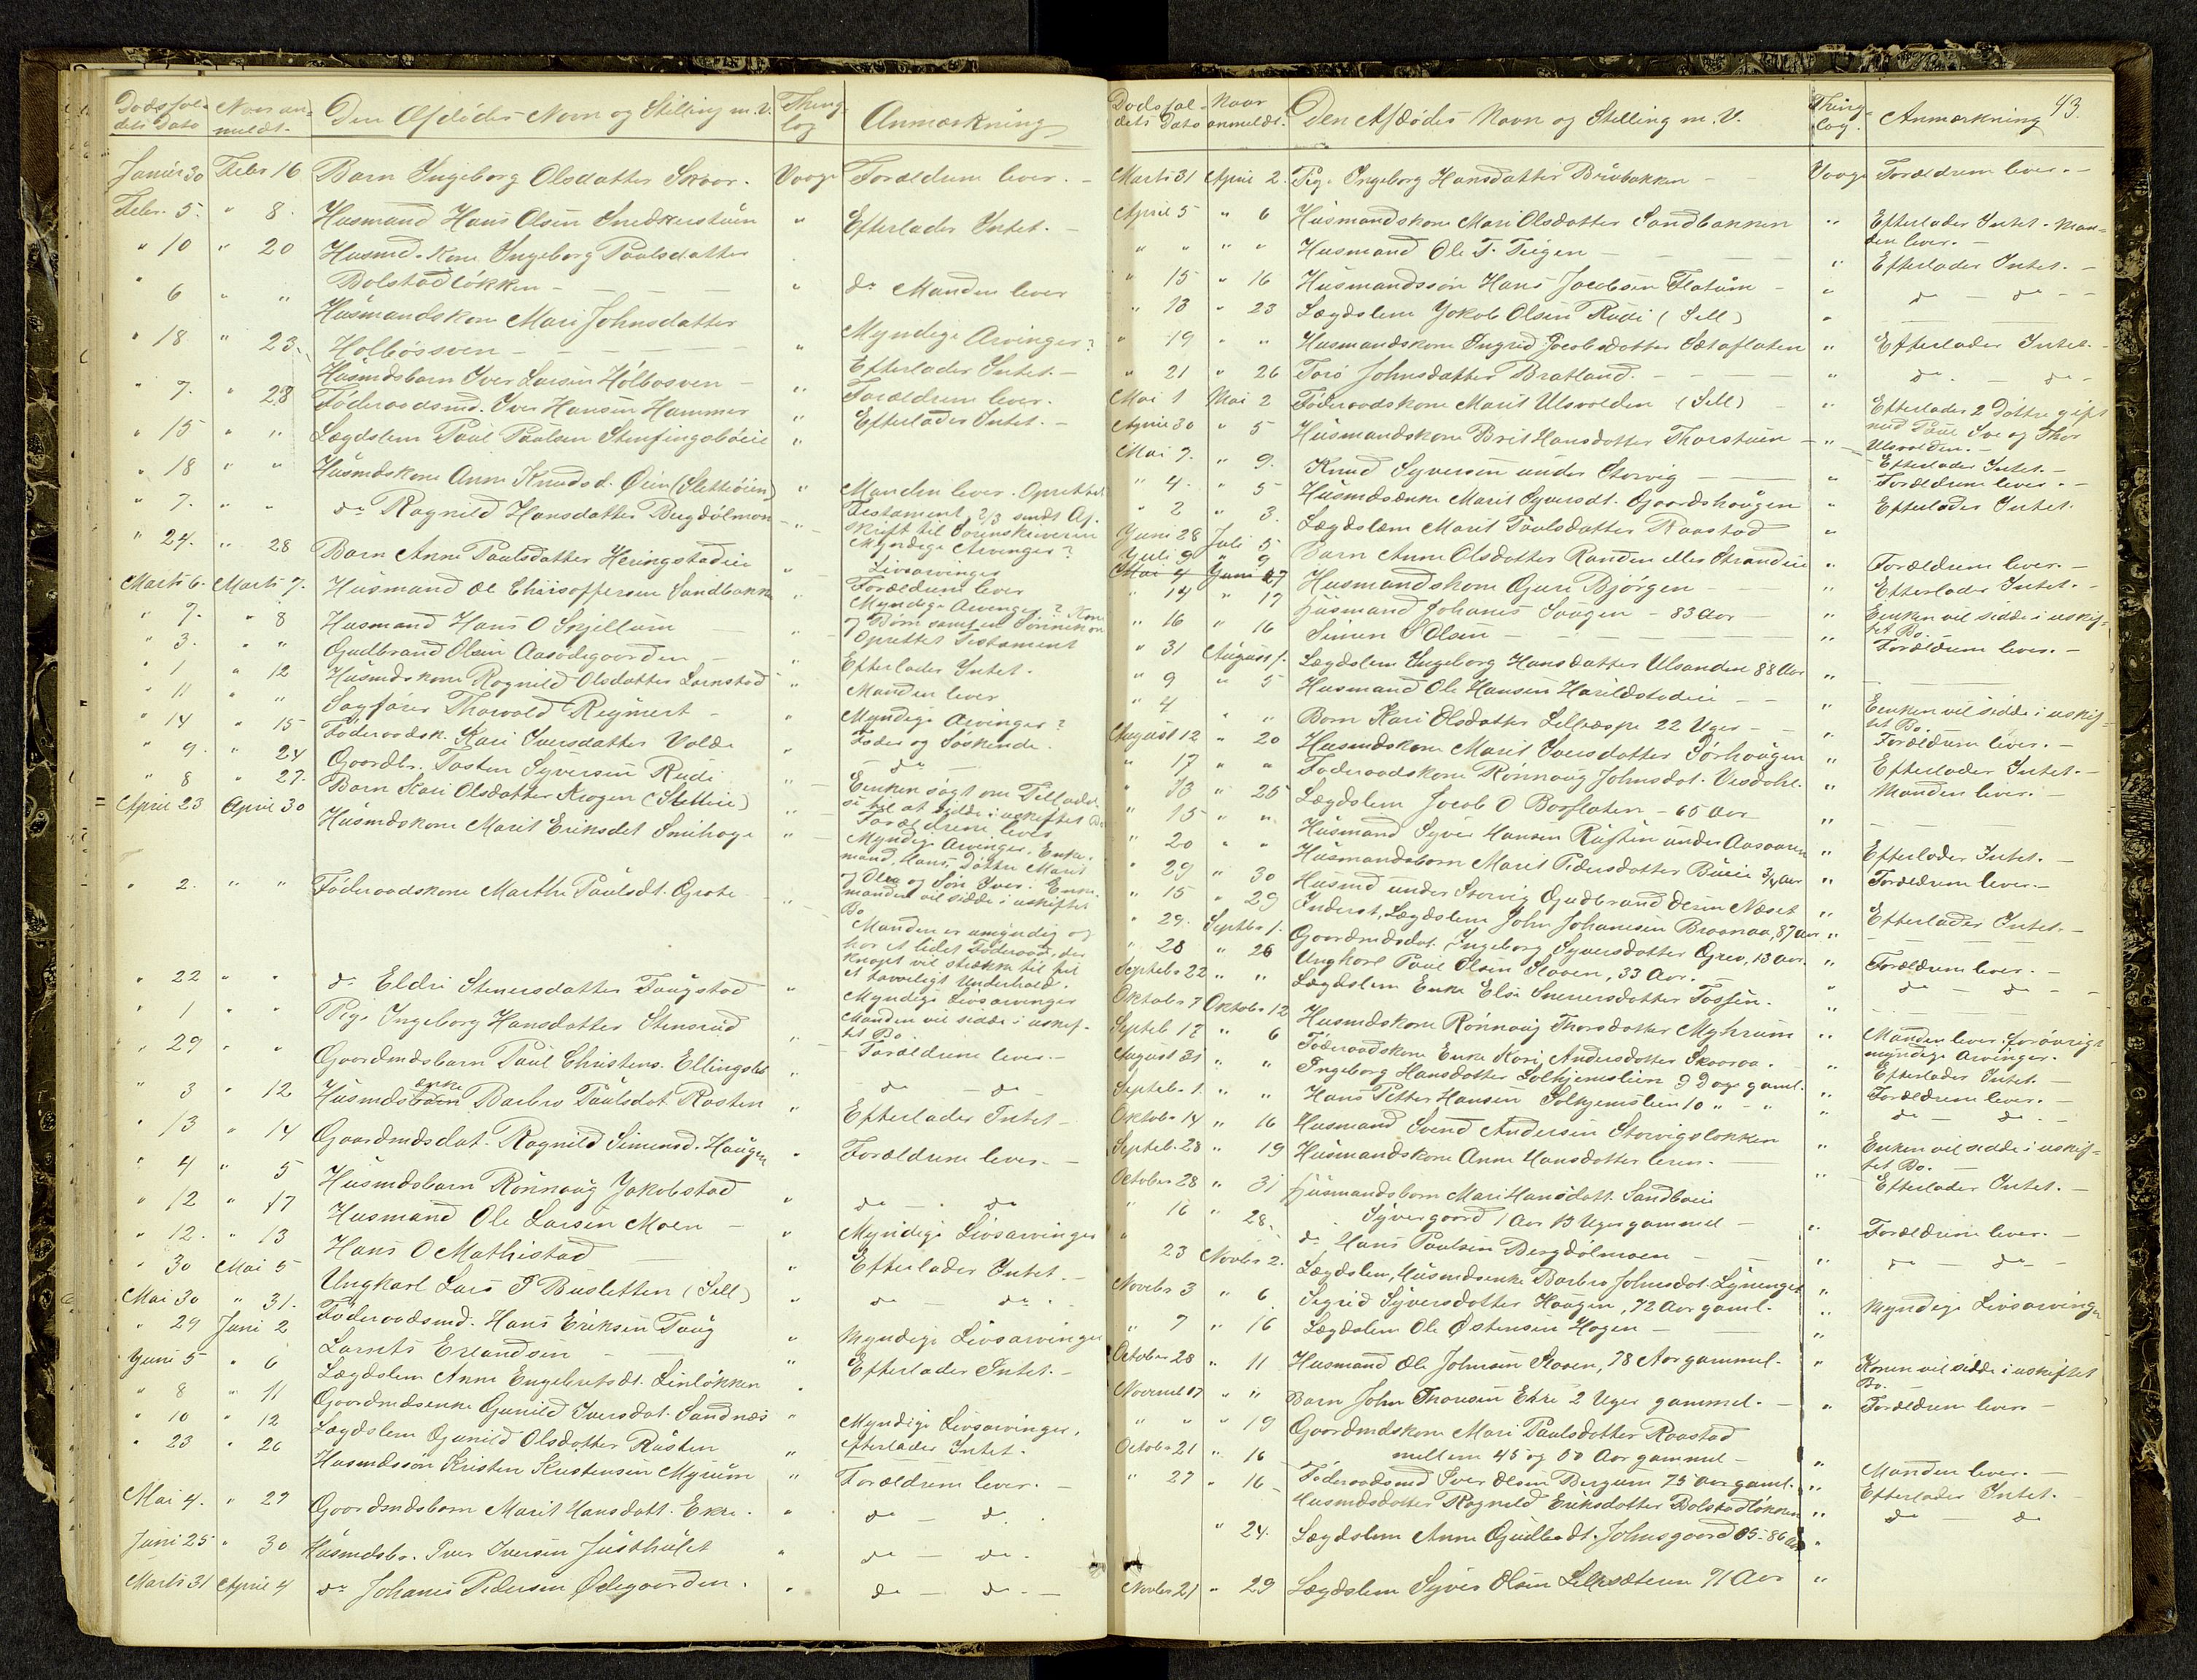 Dødsfal- Naar an- Den Afdødes Navn og Stilling m. V. Thing- Anmærkning
dets Dato meldt. lag
Januar 30 Febr 16 Barn Ingeborg Olsdatter Skaar. Vaage Forældrene lever. -
Febr. 5. " 8. Husmand Hans Olsen Snedkerstuen " Efterlader Intet. -
" 10 " 20 Husmd. Kone Ingeborg Paulsdatter
Bolstadløkken - - - " do Manden lever
" 6 " " Husmandskone Mari Johnsdatter
Holbøsveen - - - " Myndige Arvinger?
" 18 " 23. Husmdsbarn Iver Larsen Holbosveen - " Efterlader Intet. -
" 7. " 28 Føderaadsmd. Iver Hansen Hammer " Forældrene lever.
" 15 " " Lægdslem Paul Paulsen " Efterlader Intet. -
" 18 " " Husmdskone Anne Knudsd. Øien (Sletteøien) " Manden lever. Oprettet
" 7. " " do Ragnild Hansdatter Bugdølmoen " Testament 2/3 sendt Af-
skrift til Sorenskriveren
" 24. " 28 Barn Anne Paulsdatter Heringstadeie " Myndige Arvinger?
Livsarvinger
Marts 6. Marts 7. Husmand Ol Christoffersen Sandbakken " Forældrene lever
" 7. " 8 Husmand Hans O Skjellum " Myndige Arvinger? Kone
og Børn samt en Sønnekone
" 3. " " Gudbrand Olsen Aasødegaarden - " Oprettet Testament
" 1 " 12 Husmdskone Ragnild Olsdatter Larnstad " Efterlader Intet.
" 11 " " Sagfører Thorvald Reymert - " Manden lever
" 14 " 15 Føderaadsk. Kari Iversdatter Volde " Myndige Arvinger?
" 9. " 24 Gaardbr. Tosten Syversen Rudi " Fader og Søskende.
" 8 " 27. Barn Kari Olsdatter Krogen (Sletten) " do
April 23 April 30 Husmdskone Marit Eriksdat Smihage " Enken søgt om Tilladel-
se til at sidde i uskiftet Bo
Forældrene lever
Myndige Arvinger. Enke-
mand, Hans, Døttre Marit
" 2. " " Føderaadskone Marthe Paulsdt. Grote " og Olea og Søn Iver. Enke-
manden vil sidde i uskiftet
Bo
Manden er umyndig og
har et lidet Føderaad, der
knapt vil strække til til
et tarveligt Underhold.
" 22 " " do Eldri Stenersdatter Taugstad " Myndige Livsarvinger
" 1 " " Pige Ingeborg Hansdatter Stensrud " Manden vil sidde i uskif-
tet Bo.
" 29 " " Gaardmdsbarn Paul Christens. Ellingsbø " - Forældrene lever. -
" 3 " 12 Husmdsenke Barbro Paulsdat Rosten " do - do
" 13 " 14 Gaardmdsdat. Ragnild Simensd. Haugen " Efterlader Intet -
" 4 " 5 Husmdsbarn Rønnaug Jakobstad Forældrene lever. -
" 12 " 17 Husmand Ole Larsen Moen - " do - do
" 12. " 13 Hans O Mathistad " Myndige Livsarvinger
" 30 Mai 5 Ungkarl Lars P Busletten (Sell) " Efterlader Intet. -
Mai 30 " 31. Føderaadsmd. Hans Eriksen Taug " do - do.
" 29 Juni 2 Larnts Erlandsen - " Myndige Livsarvinger
Juni 5 " 6 Lægdslem Anne Engebretsdt. Linløkken " Efterlader Intet. -
" 8 " 11 Gaardmdsenke Gunild Iversdat. Sandnæs "
" 10 " 12 Lægdslem Gunild Olsdatter Rusten Myndige Livsarvinger.
" 23 " 26 Husmdssøn Kristen Kristensen Myrum " Efterlader Intet.
Forældrene lever. -
Mai 4. " 27 Gaardmdsbarn Marit Hansdatt. Ekre. " do - do.
Juni 25 " 30 Husmdsb. Iver Iversen Justhulet " do - do.
Marts 31 April 4 do Johanes Pedersen Ødegaarden. " do - do. -
43.
Dødsfal- Naar Den Afdødes Navn og Stilling m. V. Thing- Anmærkning
dets Dato anmeldt. lag.
Marts 31 April 2. Pige Ingeborg Hansdatter Brubakken - - Vaage Forældrene lever. -
April 5 " 6 Husmandskone Mari Olsdatter Sandbakken " Efterlader Intet. Man-
den lever. -
" " " " Husmand Ole T. Teigen - - - " Efterlader Intet. -
" 15 " 16 Husmandssøn Hans Jacobsen Flatum - " do - do - -
" 13 " 23 Lægdslem Jakob Olsen Rudi (Sell) "
" 19 " " Husmandskone Ingrid Jacobsdatter Sætaflaten " Efterlader Intet. -
" 21 " 26 Tore Johnsdatter Bratland. - - " do. - do -
Mai 1 Mai 2 Føderaadskone Marit Ulsvolden (Sell) - " Efterlader 2 Døttre gift
med Paul Ive og Thor
Ulsvolden. -
April 30 " 5 Husmandskone Brit Hansdatter Thorstuen - " Efterlader Intet. -
Mai 7. " 9. Knud Syversen under Storvig - " Forældrene lever. -
" 4. " 5 Husmdsenke Marit Syversdt. Gaardshaugen " Efterlader Intet.
" 2 " 3. Lægdslem Marit Paulsdatter Raastad "
Juni 28 Juli 5 Barn Anne Olsdatter Randen eller Stranden " Forældrene lever. -
Juli 9 " 9
Mai 4 Juni 27 Husmandskone Guri Bjørgen - - " Efterlader Intet. -
" 14 " 17 Husmand Johanes Haugen - 83 Aar " Enken vil sidde i uskif-
tet Bo.
" 16 " 16 Simen S Olsen - - " Forældrene lever. -
" 31 August 1. Lægdslem Ingeborg Hansdatter Ulsanden 88 Aar "
" 9 " 5 Husmand Ole Hansen Harildstadeie - - " Enken vil sidde i uskif-
tet Bo.
" 4 " " Barn Kari Olsdatter Lilleæspe 22 Uger - - " Forældrene lever. -
August 12 " 20 Husmdskone Marit Iversdatter Sørhaugen " Efterlader Intet. -
" 17 " " Føderaadskone Rønnaug Johnsdat. Vesdahl. " Manden lever. -
" 13 " 25 Lægdslem Jacob O Borflaten - 65 Aar "
" 15 " " Husmand Syver Hansen Rusten under Aasaaren " Efterlader Intet. -
" 20 " " Husmandsbarn Marit Pedersdatter Bueie 3/4 Aar " Forældrene lever. -
" 29 " 30 Husmd under Storvig Gudbrand Olsen Næset " Efterlader Intet. -
" 15 " 29 Inderst, Lægdslem John Johanesen Braanaa, 87 Aar "
" 29. Septbr 1. Gaardmdsdat. Ingeborg Syversdatter Grev, 13 Aar. " Forældrene lever. -
" 28 " 26 Ungkarl Paul Olsen Slaaen, 33 Aar. " do - do -
Septebr 22 " " Lægdslem Enke Else Sneversdatter Tofsen. "
Oktober 7 Oktober 12 Husmdskone Rønnaug Thorsdatter Myhrum " Manden lever, forøvrigt
myndige Arvinger.
Septeb 17 " 6 Føderaadskone Enke Kari Andersdatter Skaaraa. - " Efterlader Intet. -
August 31 " " Ingeborg Hansdatter Solhjemslien 9 Dage gaml. " Forældrene lever. -
Septebr 1. " " Hans Petter Hansen Solhjemslien 10 " - " " do - do. -
Oktobr 14 " 16 Husmand Svend Andersen Storvigsløkken " Enken vil sidde i uskif-
tet Bo.
Septebr 28 " 19 Husmandskone Anne Hansdatter Leren. - " Efterlader Intet. -
October 28 " 31 Husmandsbarn Mari Hansdatt. Sandboeie
Syvergaard 1 Aar 13 Uger gammel - " Forældrene lever. -
" 16 " 28. do Hans Paulsen Bergdølmoen - - " do - do -
" 23 Novbr 2. Lægdslem, Husmdsenke Barbro Johnsdat. "
Novebr 3 " 6 Sigrid Syversdatter Haugen, 72 Aar gaml. " Myndige Livsarvinger
" 7 " 16 Lægdslem Ole Østensen Hagen - "
October 28 " 11 Husmand Ole Johnsen Slaaen, 78 Aar gammel. " Konen vil sidde i uskiftet
Bo.
Novembr 17 " " Barn John Thoresen Ekre 2 Uger gammel. - " Forældrene lever. -
" " " 19 Gaardmdskone Mari Paulsdatter Raastad
mellem 45 og 50 Aar gammel - " Manden lever. -
Octobr 21 " 16 Føderaadsmd Iver Olsen Bergum 75 Aar gaml. " Efterlader Intet. -
" 27 " 16 Husmdsdatter Ragnild Eriksdatter Bolstadløkken " do - do
" 24. Lægdslem Anne Gudbrdt. Johnsgaard 85-86 Aar "
Novbr 21 " 29 Lægdslem Syver Olsen Lillesæteren 71 Aar "